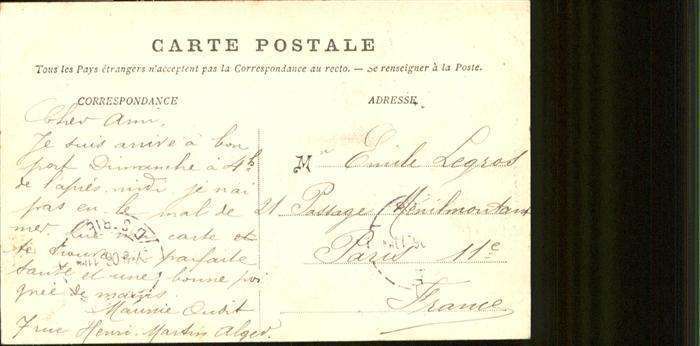 CARTE POSTALE
Tous les Pays étrangers n'acceptent pas la Correspondance au recto. — Se renseigner à la Poste.
CORRESPONDANCE
Cher Ami.
Je suis arrivé à bon
port Dimanche à 4h
de l'après-midi je n'ai
pas eu le mal de
mer. Que ma carte
te trouve parfaite
santé et une bonne poi
gnée de mains
Maurice
7 rue Henri-Martin Alger.
ADRESSE
M
Emile Legros
21 Passage Ménilmontant
Paris 11e
France